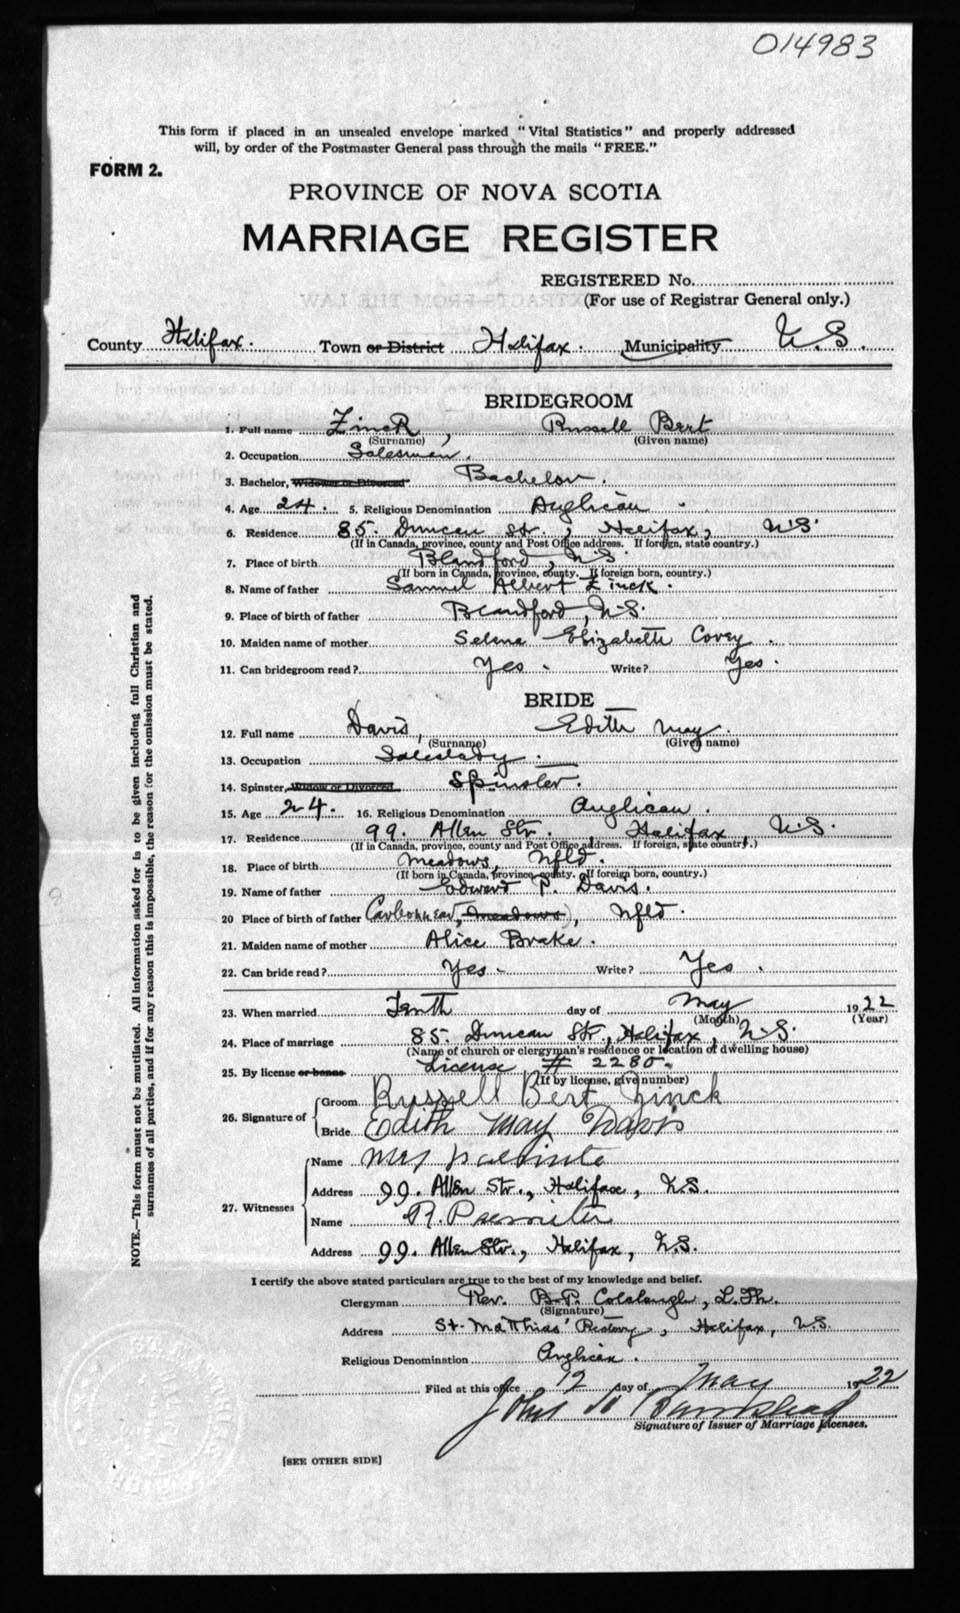 014983
This form if placed in an unsealed envelope marked "Vital Statistics" and properly addressed
will, by order of the Postmaster General pass through the mails "FREE."
FORM 2.
PROVINCE OF NOVA SCOTIA
MARRIAGE REGISTER
REGISTERED No.
(For use of Registrar General only.)
County Halifax. Town or District Halifax. Municipality N.S.
BRIDEGROOM
1. Full name Zinck, Russell Bert
(Surname) (Given name)
2. Occupation Salesman.
3. Bachelor, Widower or Divorced Bachelor.
4. Age 24. 5. Religious Denomination Anglican
6. Residence 85. Duncan St., Halifax, N.S.
(If in Canada, province, county and Post Office address. If foreign, state country.)
7. Place of birth Blandford, N.S.
(If born in Canada, province, county. If foreign born, country.)
8. Name of father Samuel Albert Zinck.
9. Place of birth of father Blandford, N.S.
10. Maiden name of mother Selena Elizabeth Covey.
11. Can bridegroom read? Yes. Write? Yes.
BRIDE
12. Full name Davis, Edith May.
(Surname) (Given name)
13. Occupation Saleslady.
14. Spinster, Widow or Divorced Spinster.
15. Age 24. 16. Religious Denomination Anglican.
17. Residence 99. Allen Str., Halifax, N.S.
(If in Canada, province, county and Post Office address. If foreign, state country.)
18. Place of birth Meadows, Nfld.
(If born in Canada, province, county. If foreign born, country.)
19. Name of father Edward P. Davis.
20 Place of birth of father Carbonear, (Meadows), Nfld.
21. Maiden name of mother Alice Brake.
22. Can bride read? Yes. Write? Yes.
23. When married Tenth day of May 1922
(Month) (Year)
24. Place of marriage 85. Duncan Str., Halifax, N.S.
(Name of church or clergyman's residence or location of dwelling house)
25. By license or banns License # 2280.
(If by license, give number)
26. Signature of Groom Russell Bert Zinck
Bride Edith May Davis
27. Witnesses Name Mrs
Address 99. Allen Str., Halifax, N.S.
Name R.
Address 99. Allen Str., Halifax, N.S.
I certify the above stated particulars are true to the best of my knowledge and belief.
Clergyman Rev. B.P. Colclough, L.Th.
(Signature)
Address St. Matthias' Rectory, Halifax, N.S.
Religious Denomination Anglican.
Filed at this office 12 day of May 1922
John
Signature of Issuer of Marriage Licenses.
[SEE OTHER SIDE]
NOTE.—This form must not be mutilated. All information asked for is to be given including full Christian and
surnames of all parties, and if for any reason this is impossible, the reason for the omission must be stated.